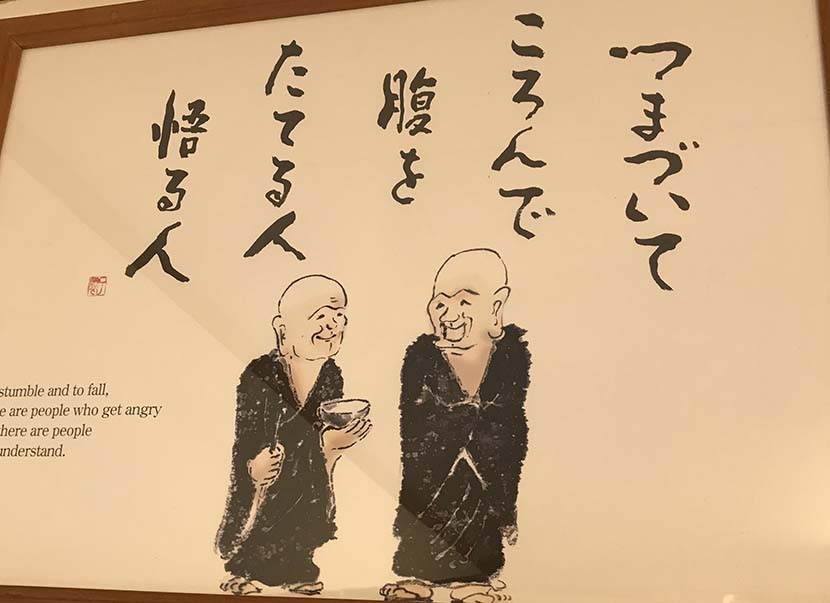 つまづいて
ころんで
腹を
たてる人
悟る人
stumble and to fall,
e are people who get angry
there are people
understand.